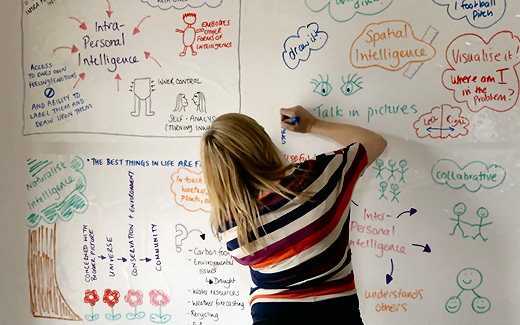 Intra-
Personal
Intelligence
EMBODIES
OTHER
FORMS OF
INTELLIGENCE
ACCESS
TO ONE'S OWN
FEELING/EMOTIONS
AND ABILITY TO
LABEL THEM AND
DRAW UPON THEM
INNER CONTROL
SELF-ANALYSIS
(TURNING
draw it
1 FOOTBALL
PITCH
Spatial
Intelligence
Visualise it?
Where am I
in the
Problem?
Talk in pictures
Left
Right
Naturalist
Intelligence
"THE BEST THINGS IN LIFE ARE
In touch
Weather
Plants,
CONCERNED WITH
BIGGER PICTURE
UNIVERSE
CONSERVATION + ENVIRONMENT
COMMUNITY
- Carbon foot
- Environmental
issues
Drought
- Water resources
- Weather forecasting
- Recycling
collaborative
Inter-
Personal
Intelligence
understands
others